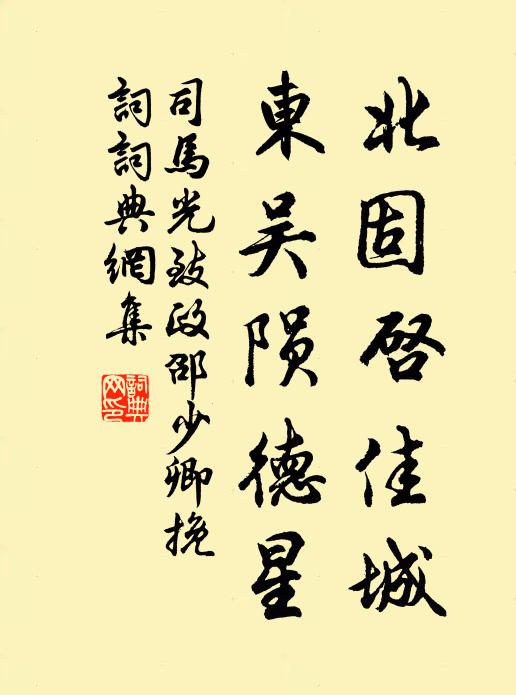 北固啓佳城
東吴隕德星
司馬光致政邵少卿挽
詞詞典網集
詞典
网印